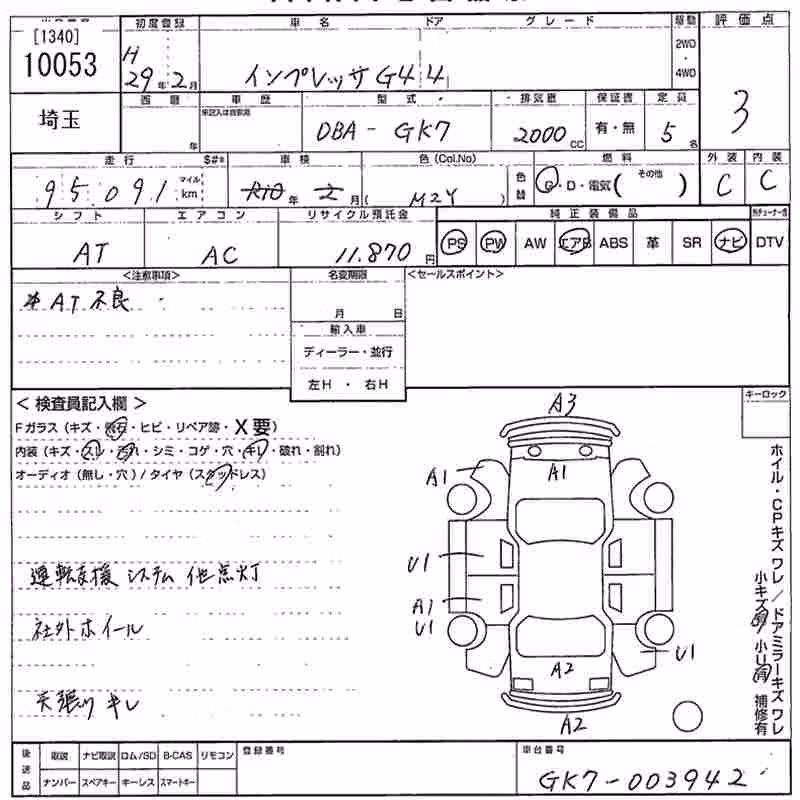 [1340]
10053
初度登録
H
29年2月
車名
ドア
グレード
インプレッサG4 4
駆動
2WD
・
4WD
評価点
3
埼玉
西暦
年
車歴
未記入は自家用
型式
DBA-GK7
排気量
2000 CC
保証書
有・無
定員
5名
走行
$#*
95,091
マイル
km
車検
R10年2月
色(Col.No)
( M2Y )
色替
燃料
G・D・電気( その他 )
外装
C
内装
C
シフト
AT
エアコン
AC
リサイクル預託金
11,870円
純正装備品
PS PW AW エアB ABS 革 SR ナビ DTV
<注意事項>
本AT不良
名変期限
月 日
輸入車
ディーラー・並行
左H・右H
<セールスポイント>
<検査員記入欄>
Fガラス(キズ・飛石・ヒビ・リペア跡・X要)
内装(キズ・スレ・汚れ・シミ・コゲ・穴・キレ・破れ・割れ)
オーディオ(無し・穴)/タイヤ(スタッドレス)
運転支援システム他点灯
社外ホイール
天張りキレ
A3
A1
A1
U1
A1
U1
U1
A2
A2
キーロック
ホイル・CPキズワレ/ドアミラーキズワレ
小キズ 小U 補修有
後送品
取説 ナビ取説 ロム/SD B-CAS リモコン
ナンバー スペアキー キーレス スマートキー
登録番号
車台番号
GK7-003942